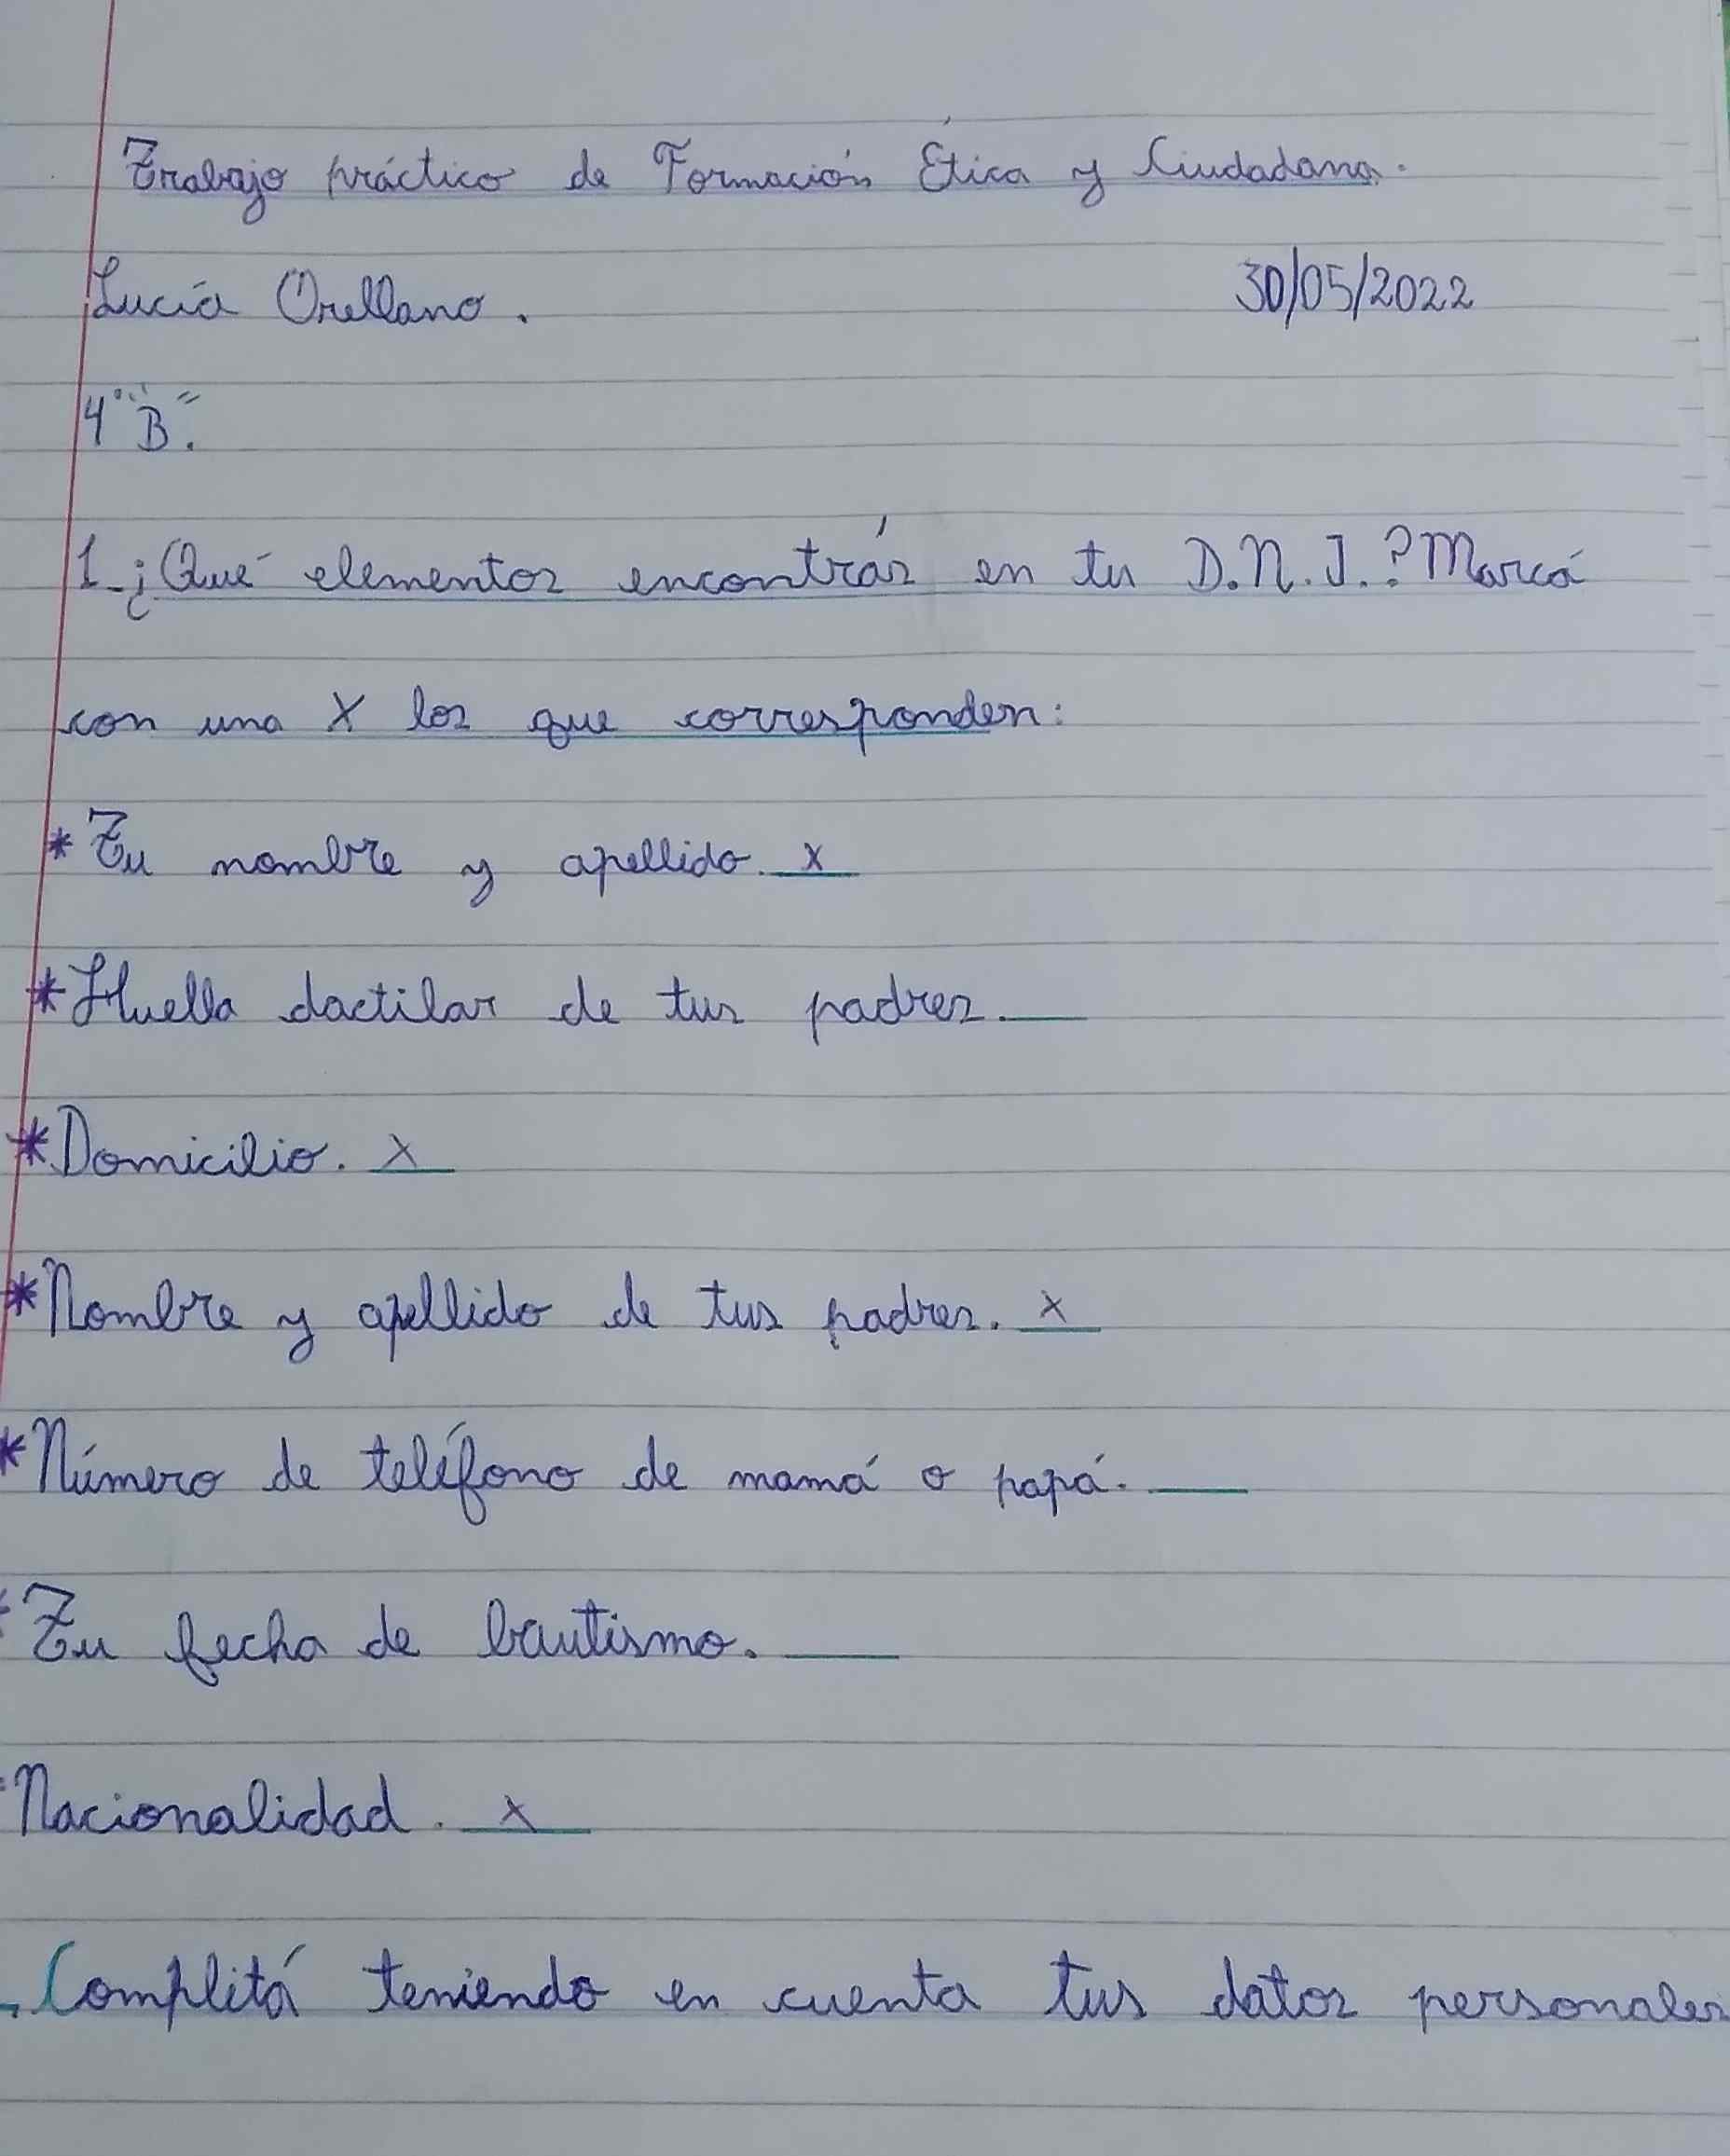 Trabajo práctico de Formación Ética y Ciudadana.
Lucía Orellano. 30/05/2022
4° "B".
1-¿Qué elementos encontrás en tu D.N.I.? Marcá
con una X los que corresponden:
* Tu nombre y apellido. x
* Huella dactilar de tus padres. __
* Domicilio. x
* Nombre y apellido de tus padres. x
* Número de teléfono de mamá o papá. __
* Tu fecha de bautismo. __
Nacionalidad. x
Complitá teniendo en cuenta tus datos personales